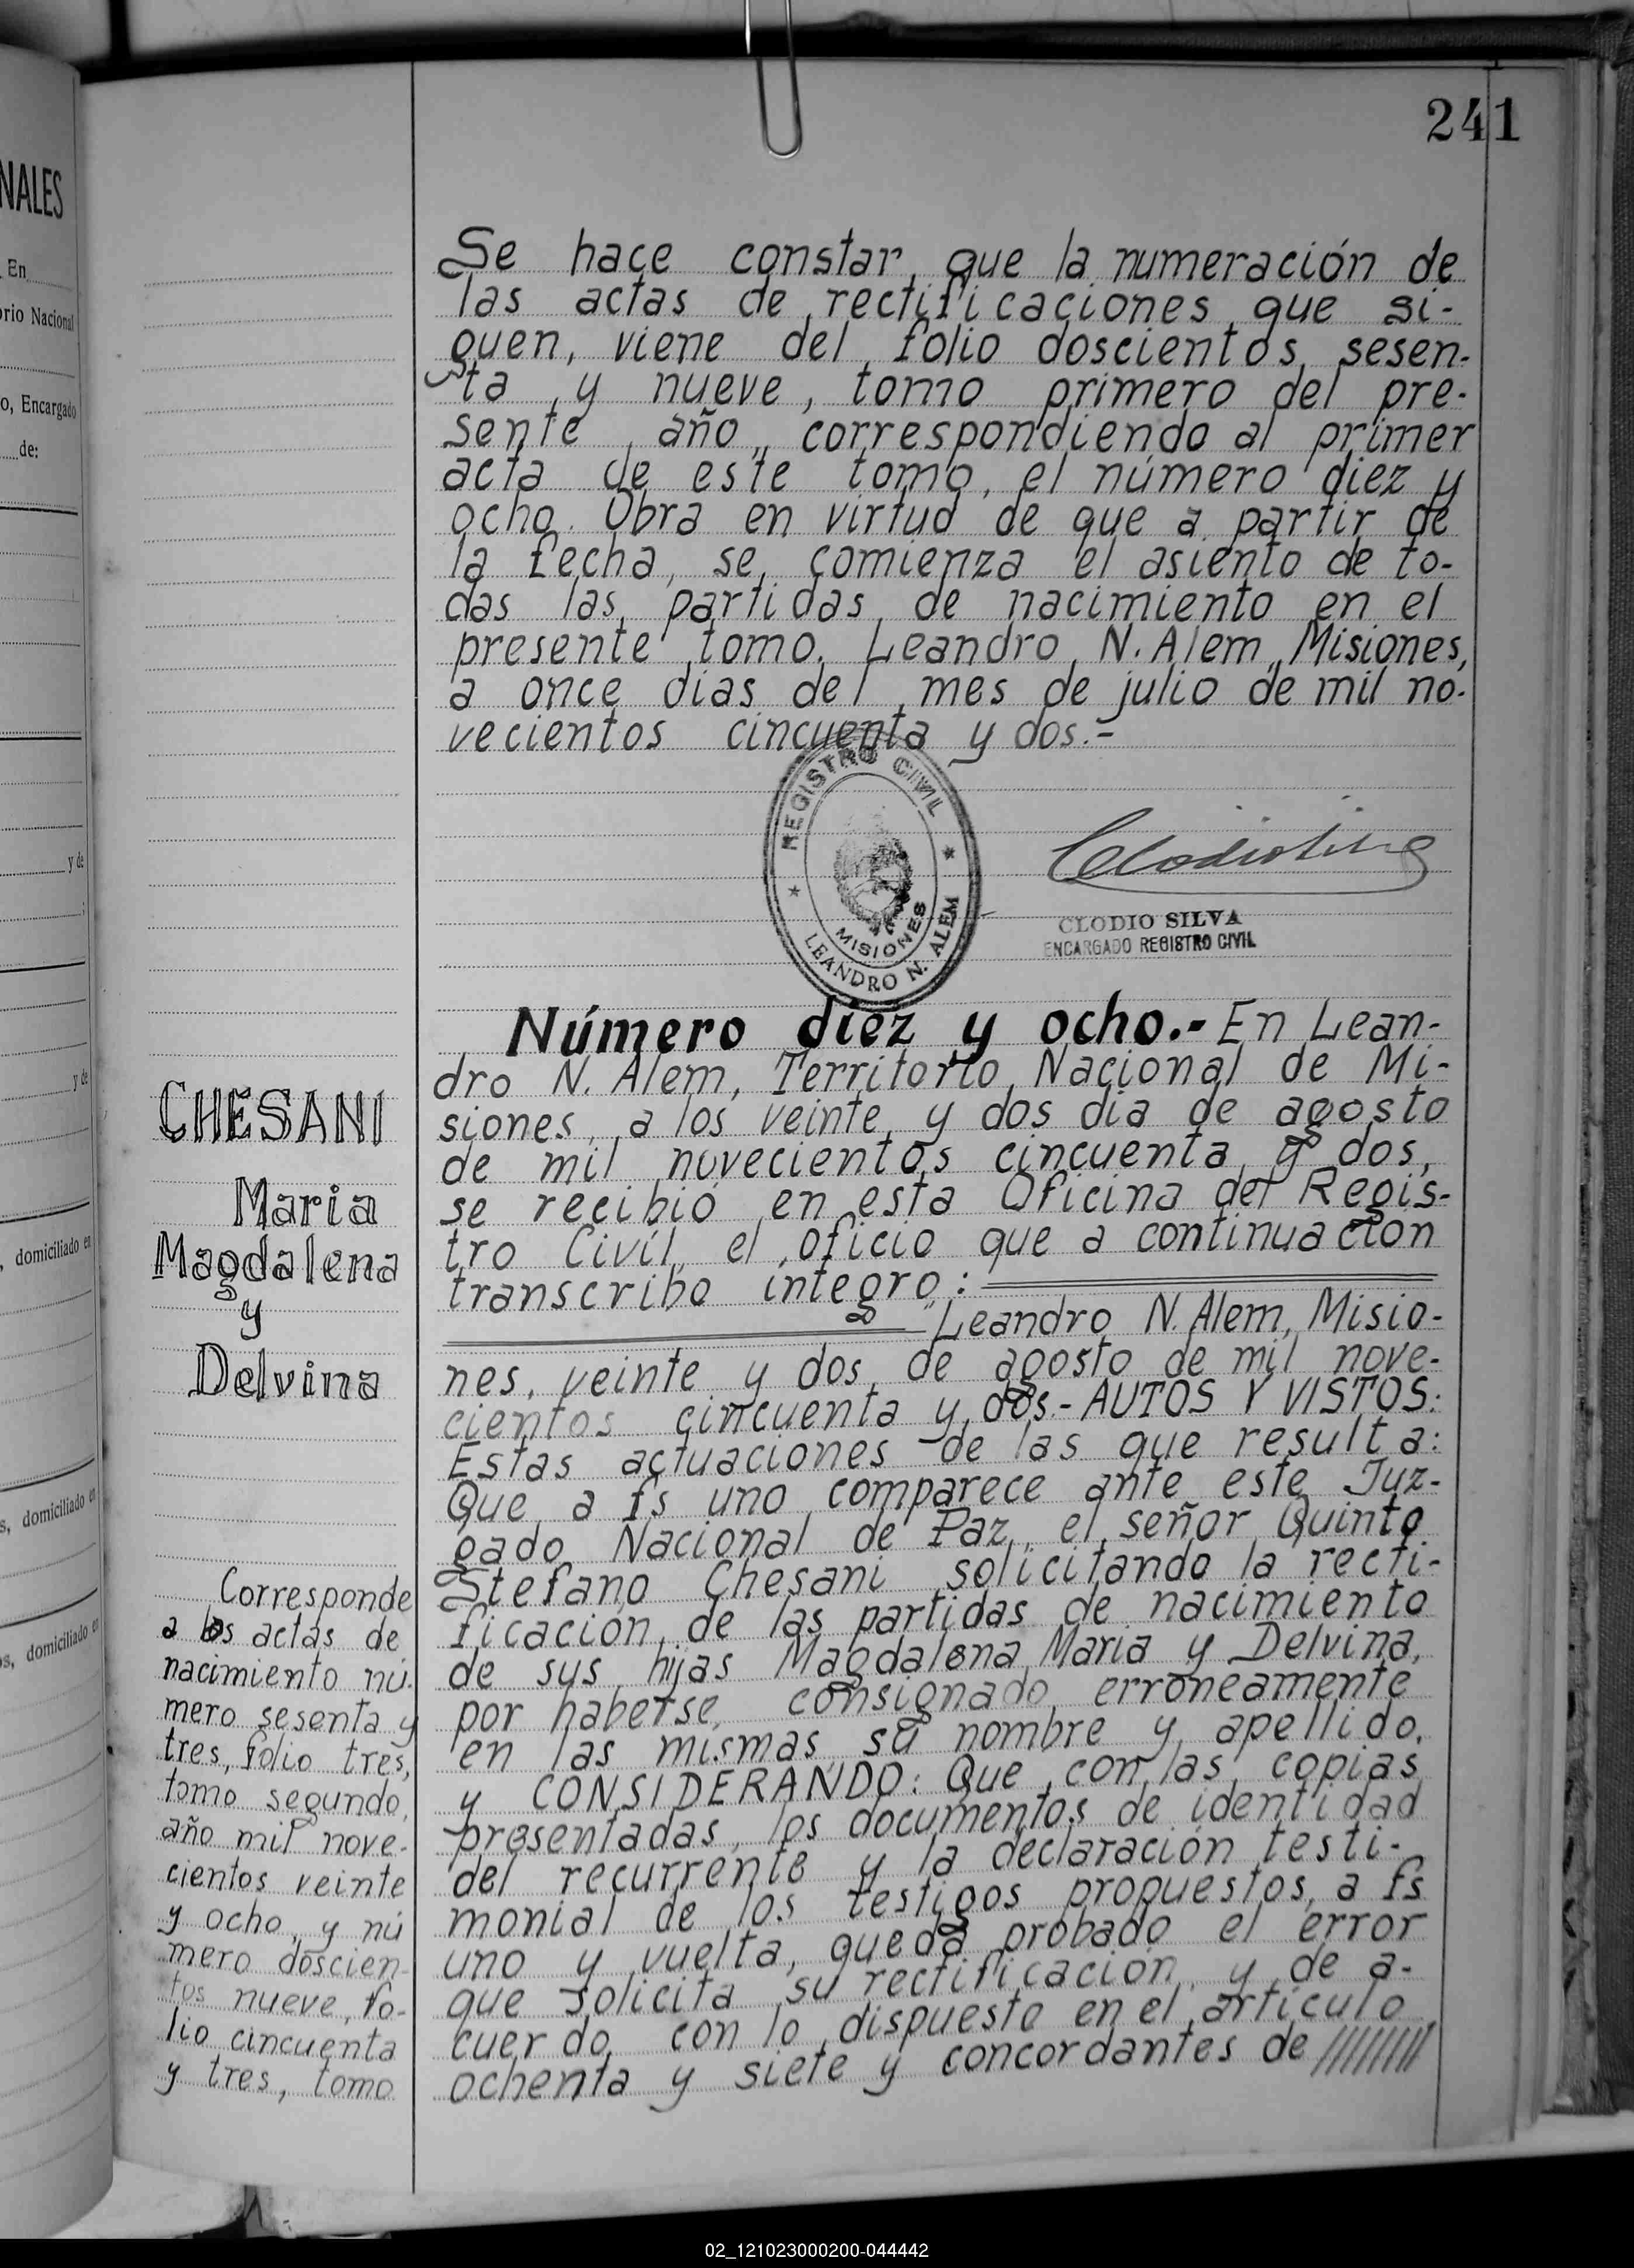 241
NALES
En
orio Nacional
o, Encargado
de:
y de
y de
, domiciliado en
s, domiciliado en
os, domiciliado en
Se hace constar que la numeración de
las actas de rectificaciones que si-
guen, viene del folio doscientos sesen-
ta y nueve, tomo primero del pre-
sente año, correspondiendo al primer
acta de este tomo, el número diez y
ocho. Obra en virtud de que a partir de
la fecha, se comienza el asiento de to-
das las partidas de nacimiento en el
presente tomo. Leandro N. Alem, Misiones,
a once días del mes de julio de mil no-
vecientos cincuenta y dos.-
REGISTRO CIVIL
MISIONES
LEANDRO N. ALEM
Clodio Silva
CLODIO SILVA
ENCARGADO REGISTRO CIVIL
CHESANI
Maria
Magdalena
y
Delvina
Corresponde
a los actas de
nacimiento nú-
mero sesenta y
tres, folio tres,
tomo segundo,
año mil nove-
cientos veinte
y ocho, y nú
mero doscien-
tos nueve, fo-
lio cincuenta
y tres, tomo
Número diez y ocho.- En Lean-
dro N. Alem, Territorio Nacional de Mi-
siones, a los veinte y dos día de agosto
de mil novecientos cincuenta y dos,
se recibió en esta Oficina del Regis-
tro Civil, el oficio que a continuación
transcribo íntegro:
"Leandro N. Alem, Misio-
nes, veinte y dos de agosto de mil nove-
cientos cincuenta y dos.- AUTOS Y VISTOS:
Estas actuaciones de las que resulta:
Que a fs uno comparece ante este Juz-
gado Nacional de Paz, el señor Quinto
Stefano Chesani solicitando la recti-
ficación de las partidas de nacimiento
de sus hijas Magdalena Maria y Delvina,
por haberse consignado erróneamente
en las mismas su nombre y apellido,
y CONSIDERANDO: Que con las copias
presentadas, los documentos de identidad
del recurrente y la declaración testi-
monial de los testigos propuestos, a fs
uno y vuelta, queda probado el error
que solicita su rectificación, y de a-
cuerdo con lo dispuesto en el artículo
ochenta y siete y concordantes de /////////
02_121023000200-044442